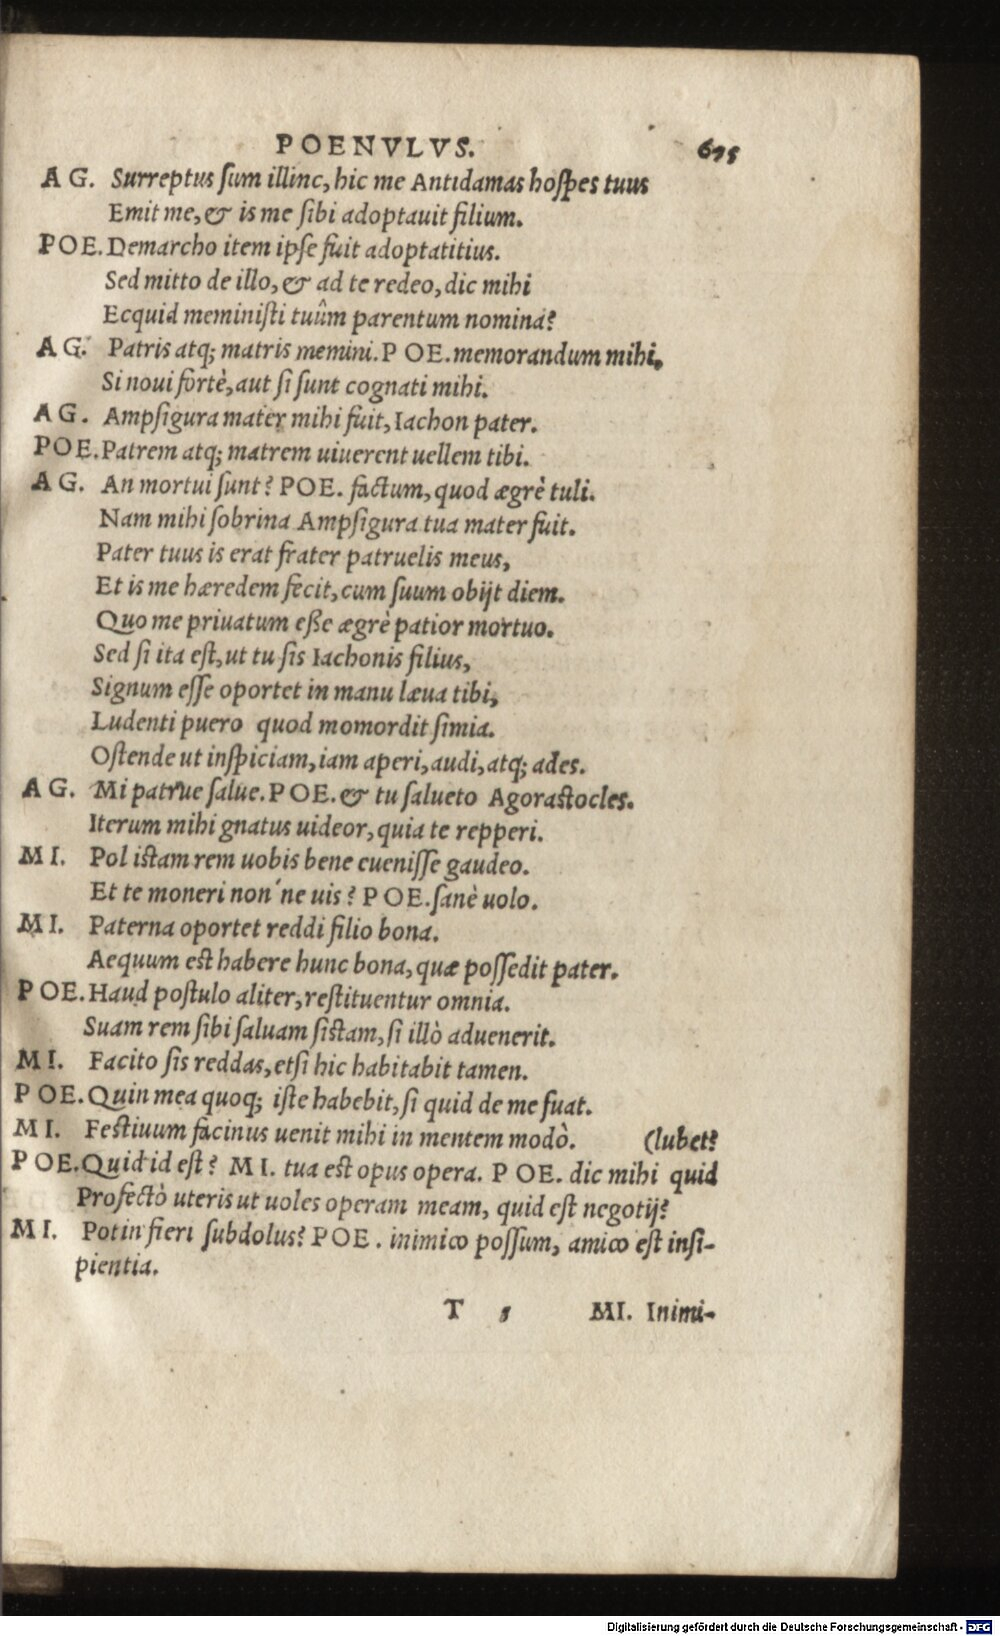 POENVLVS. 695
AG. Surreptus sum illinc, hic me Antidamas hospes tuus
Emit me, & is me sibi adoptauit filium.
POE. Demarcho item ipse fuit adoptatitius.
Sed mitto de illo, & ad te redeo, dic mihi
Ecquid meministi tuûm parentum nomina?
AG. Patris atq; matris memini. POE. memorandum mihi,
Si noui fortè, aut si sunt cognati mihi.
AG. Ampsigura mater mihi fuit, Iachon pater.
POE. Patrem atq; matrem uiuerent uellem tibi.
AG. An mortui sunt? POE. factum, quod ægrè tuli.
Nam mihi sobrina Ampsigura tua mater fuit.
Pater tuus is erat frater patruelis meus,
Et is me hæredem fecit, cum suum obijt diem.
Quo me priuatum eße ægrè patior mortuo.
Sed si ita est, ut tu sis Iachonis filius,
Signum esse oportet in manu læua tibi,
Ludenti puero quod momordit simia.
Ostende ut inspiciam, iam aperi, audi, atq; ades.
AG. Mi patrue salue. POE. & tu salueto Agorastocles.
Iterum mihi gnatus uideor, quia te repperi.
MI. Pol istam rem uobis bene euenisse gaudeo.
Et te moneri non´ne uis? POE. sanè uolo.
MI. Paterna oportet reddi filio bona.
Aequum est habere hunc bona, quæ possedit pater.
POE. Haud postulo aliter, restituentur omnia.
Suam rem sibi saluam sistam, si illò aduenerit.
MI. Facito sis reddas, etsi hic habitabit tamen.
POE. Quin mea quoq; iste habebit, si quid de me fuat.
MI. Festiuum facinus uenit mihi in mentem modò. (lubet?
POE. Quid id est? MI. tua est opus opera. POE. dic mihi quid
Profectò uteris ut uoles operam meam, quid est negotij?
MI. Potin fieri subdolus? POE. inimico possum, amico est insi-
pientia.
T 5 MI. Inimi-
Digitalisierung gefördert durch die Deutsche Forschungsgemeinschaft - DFG